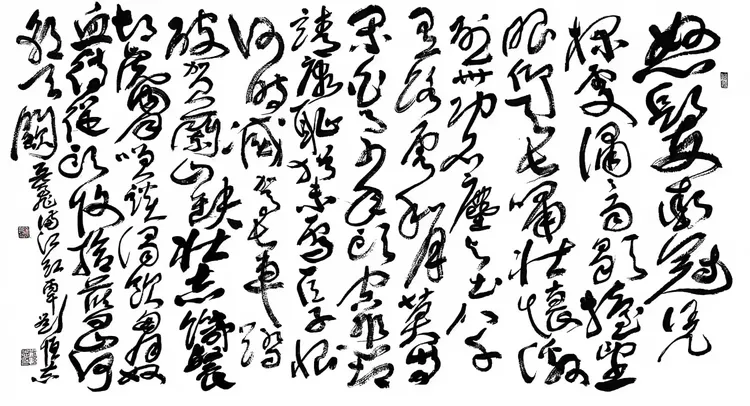 怒髮衝冠憑
欄處瀟瀟雨歇抬望
眼仰天長嘯壯懷激
烈卅功名塵與土八千
里路雲和月莫等
閒白了少年頭空悲切
靖康恥猶未雪臣子恨
何時滅駕長車踏
破賀蘭山缺壯志飢餐
胡虜肉笑談渴飲匈奴
血待從頭收拾舊山河
朝天闕
岳飛滿江紅